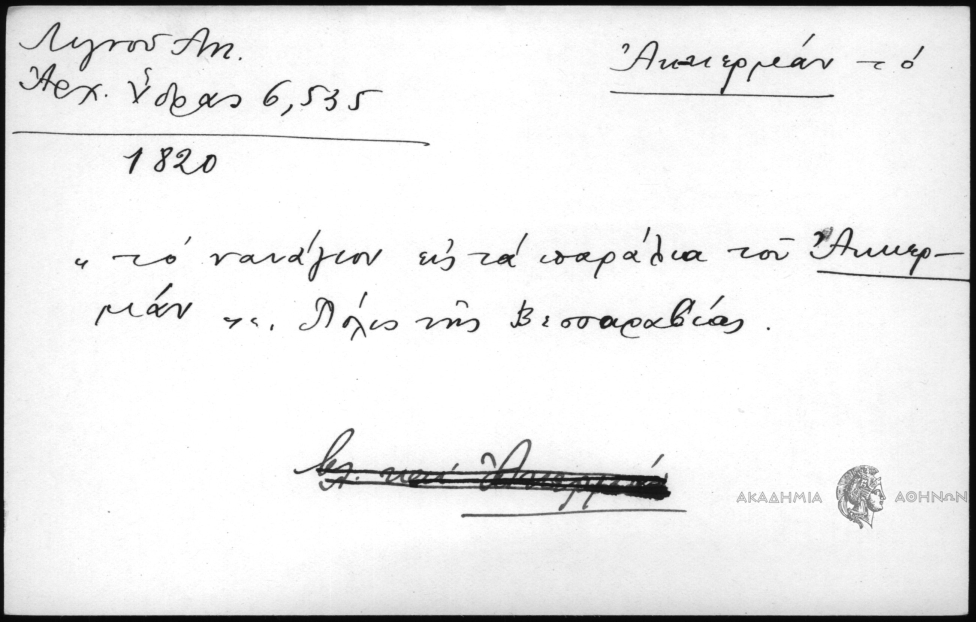 Λιγνοῦ Ἀν.
Ἀρχ. Ὕδρας 6,535
Ἀκκερμάν τό
1820
"τό ναυάγιον εἰς τά παράλια τοῦ Ἀκκερ-
μάν". Πόλις τῆς Βεσσαραβίας.
Βλ. καί
ΑΚΑΔΗΜΙΑ ΑΘΗΝΩΝ